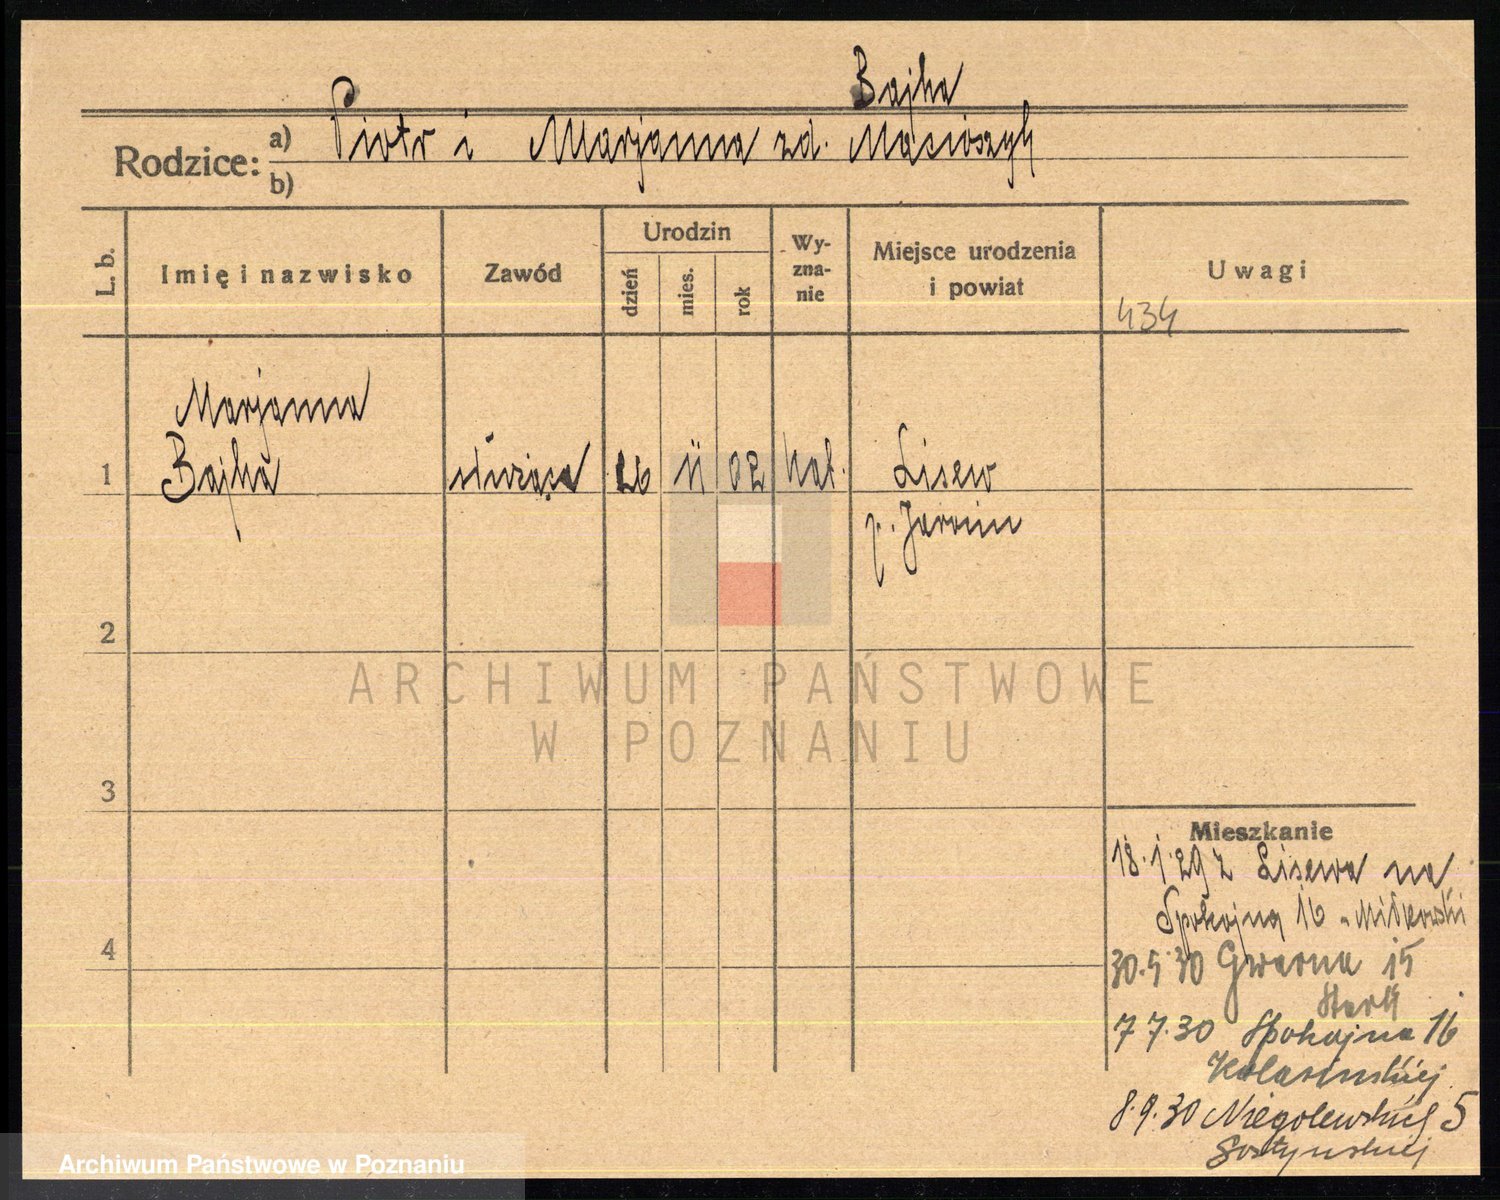 Bajka
Rodzice: a) Piotr i Marjanna zd. Masioszyk
b)
L. b.
Imię i nazwisko
Zawód
Urodzin
dzień
mies.
rok
Wy-
zna-
nie
Miejsce urodzenia
i powiat
Uwagi
434
Marjanna
1 Bajka służąca 26 11 02 kat. Lisew
p. Jarocin
2
ARCHIWUM PAŃSTWOWE
W POZNANIU
3
Mieszkanie
18.1.29 z Lisewa na
Spokojną 16
4
30.5.30 Gwarna 15
7 7.30 Spokojna 16
Kolasińskiej
8.9.30 Niegolewskich 5
Gostyńskiej
Archiwum Państwowe w Poznaniu